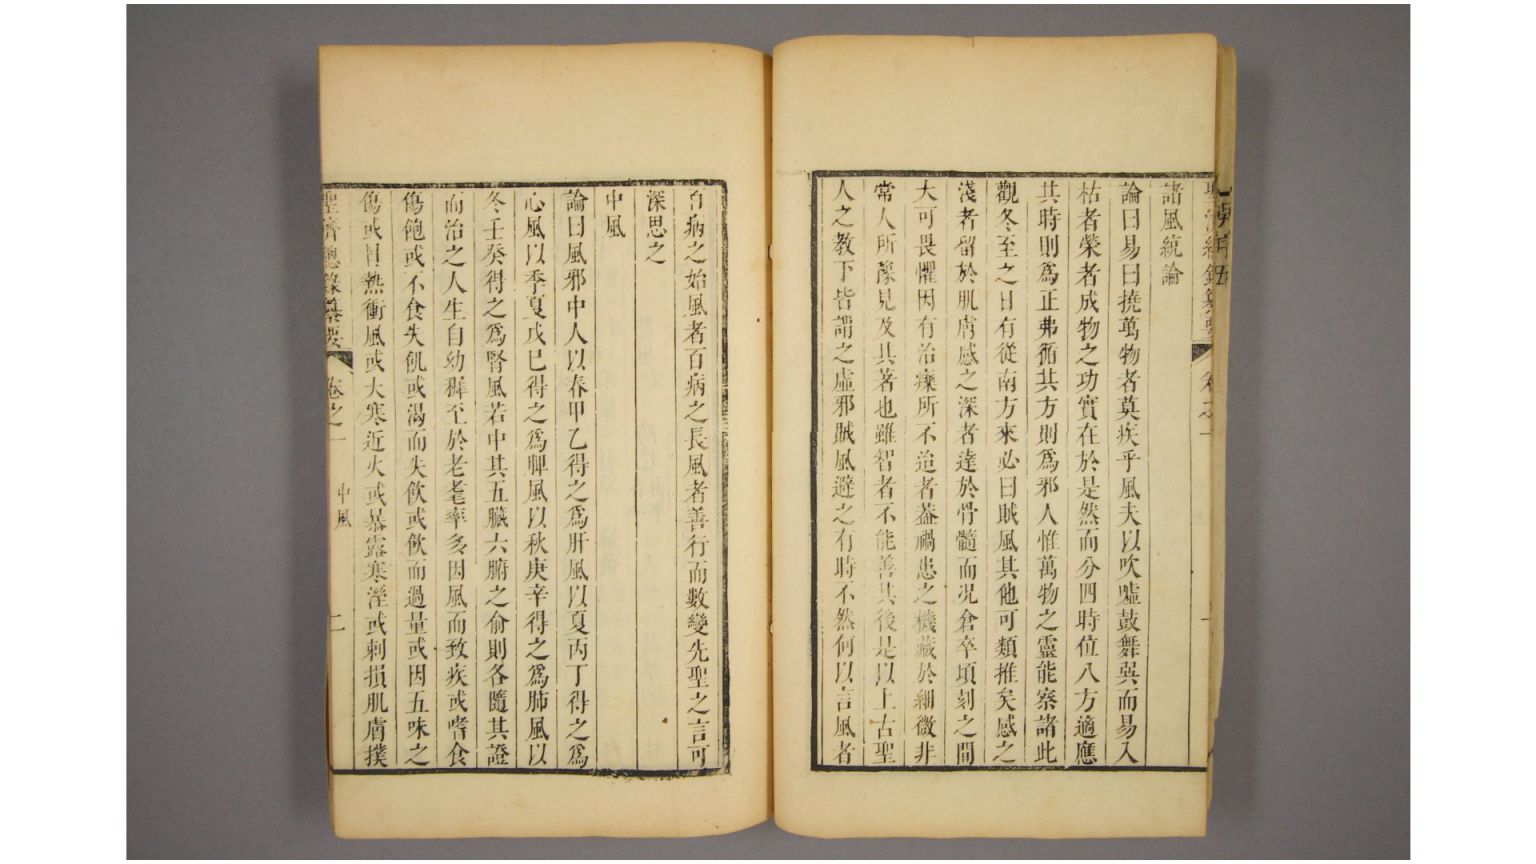 聖濟總錄纂要 卷之一 一
諸風統論
論曰易曰撓萬物者莫疾乎風夫以吹噓鼓舞巽而易入
枯者榮者成物之功實在於是然而分四時位八方適應
其時則為正弗循其方則為邪人惟萬物之靈能察諸此
觀冬至之日有從南方來必曰賊風其他可類推矣感之
淺者留於肌膚感之深者達於骨髓而况倉卒頃刻之間
大可畏懼因有治療所不迨者葢禍患之機藏於細微非
常人所豫見及其著也雖智者不能善其後是以上古聖
人之教下皆謂之虛邪賊風避之有時不然何以言風者
百病之始風者百病之長風者善行而數變先聖之言可
深思之
中風
論曰風邪中人以春甲乙得之為肝風以夏丙丁得之為
心風以季夏戊巳得之為脾風以秋庚辛得之為肺風以
冬壬癸得之為腎風若中其五臟六腑之俞則各隨其證
而治之人生自幼穉至於老耄率多因風而致疾或嗜食
傷飽或不食失飢或渴而失飲或飲而過量或因五味之
傷或冒熱衝風或大寒近火或暴露寒溼或刺損肌膚撲
聖濟總錄纂要 卷之一 中風 二